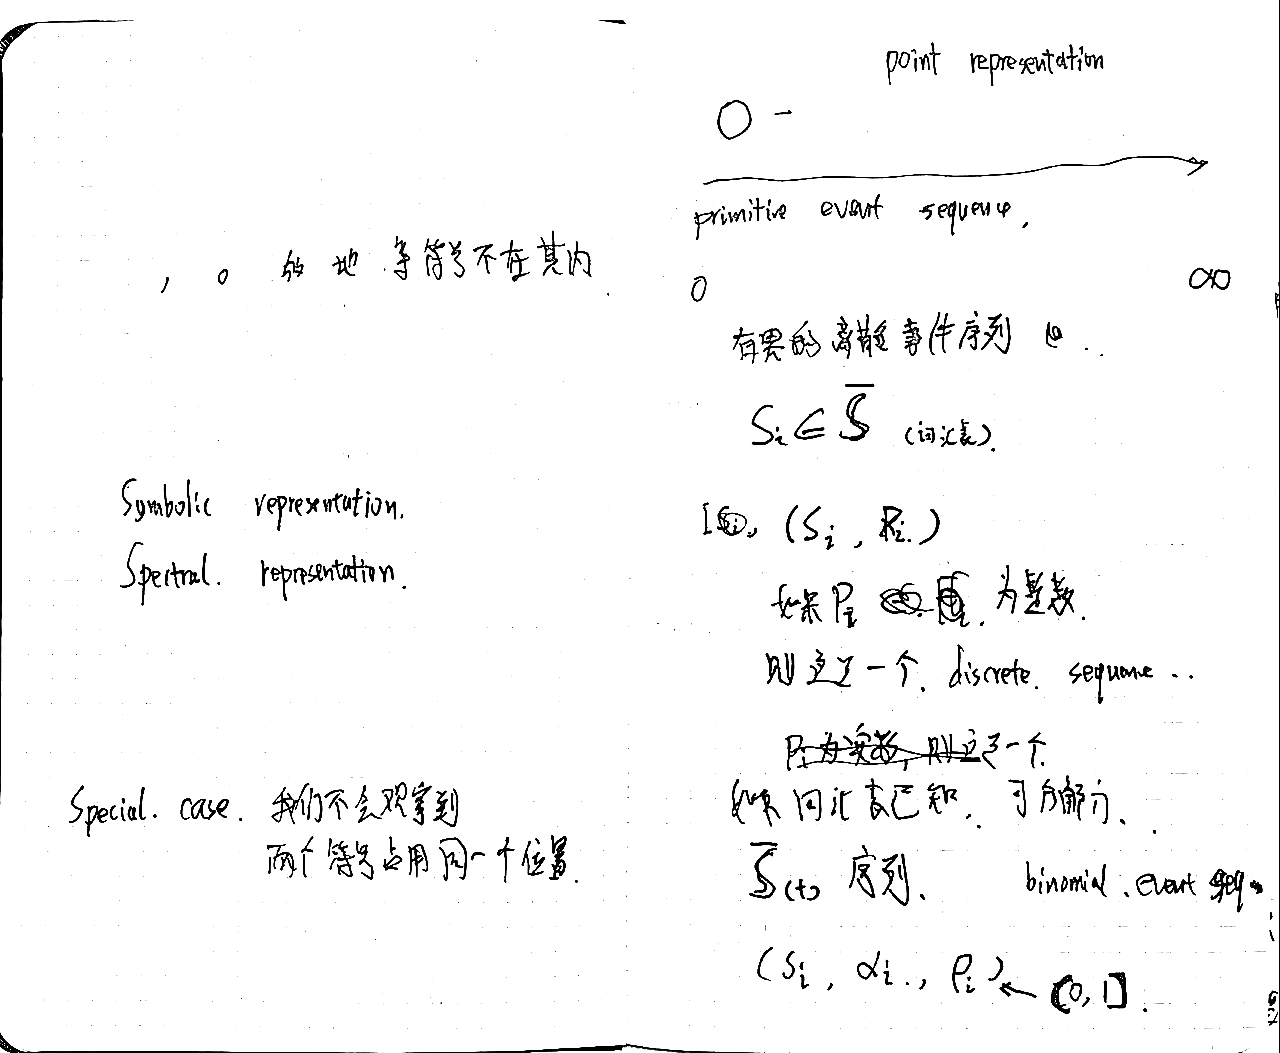 , 。 的 地 等符号不在其内.
Symbolic representation.
Spectral. representation.
Special. case. 我们不会观察到
两个符号占用同一个位置.
point representation
primitive event sequence.
0 ∞
有界的离散事件序列
Si ∈ S̄ (词汇表).
(Si, Pi.)
如果 Pi 为整数.
则这是一个. discrete. sequence ..
Pi 为实数, 则这是一个.
如果词汇表已知. 可分解为.
S̄(t) 序列. binomial. event seq
(Si, αi., ρi) ← [0,1].